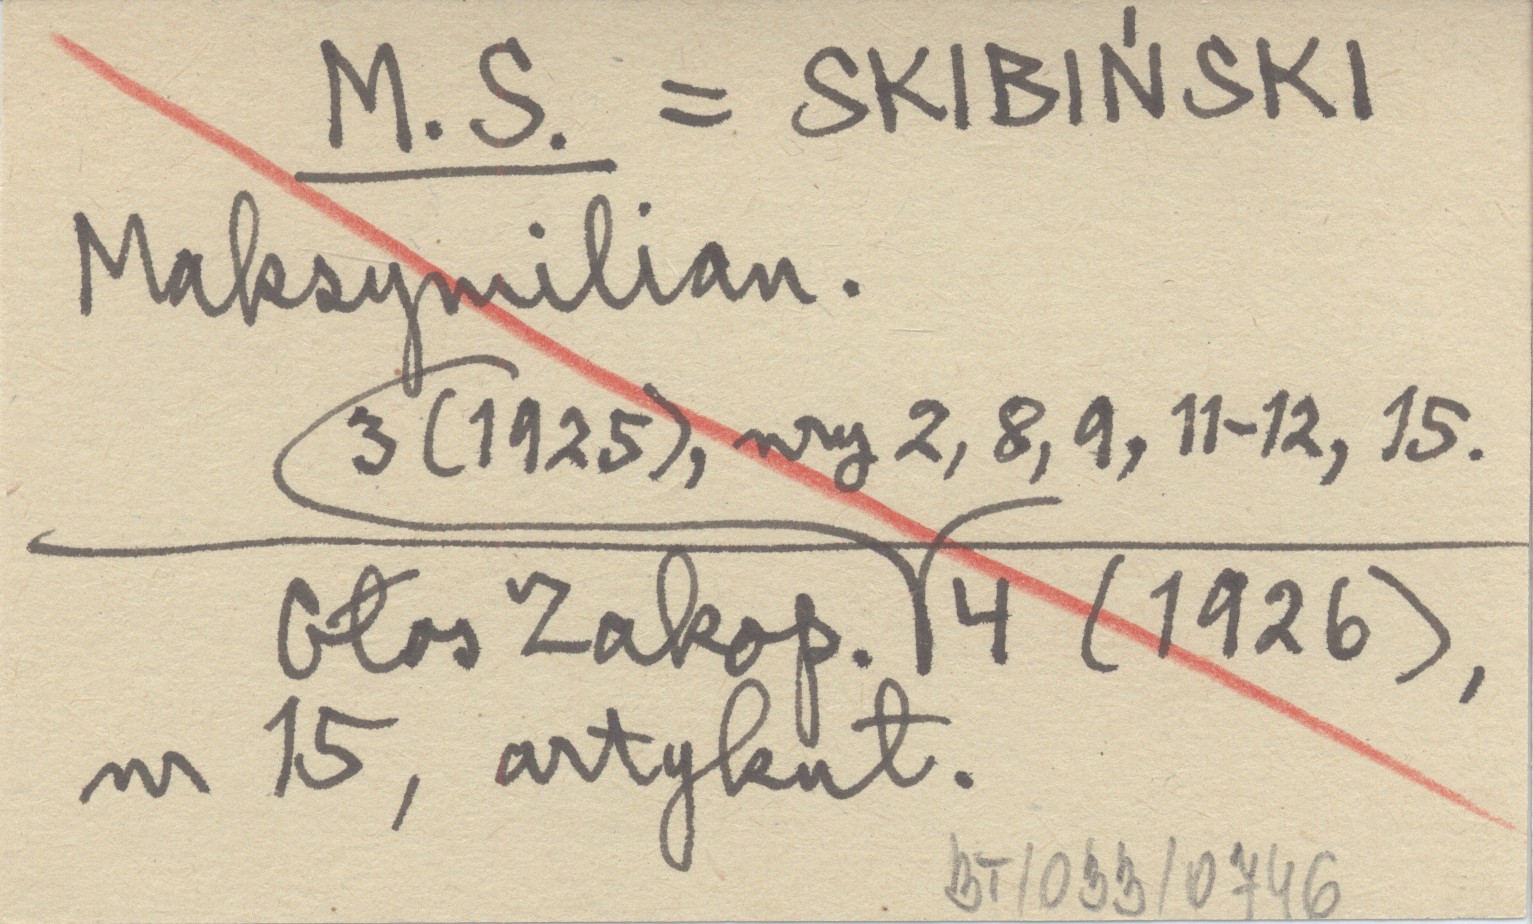 M.S. = SKIBIŃSKI
Maksymilian.
3 (1925), nry 2, 8, 9, 11-12, 15.
Głos Zakop. 4 (1926),
nr 15, artykuł.
BT/033/0746